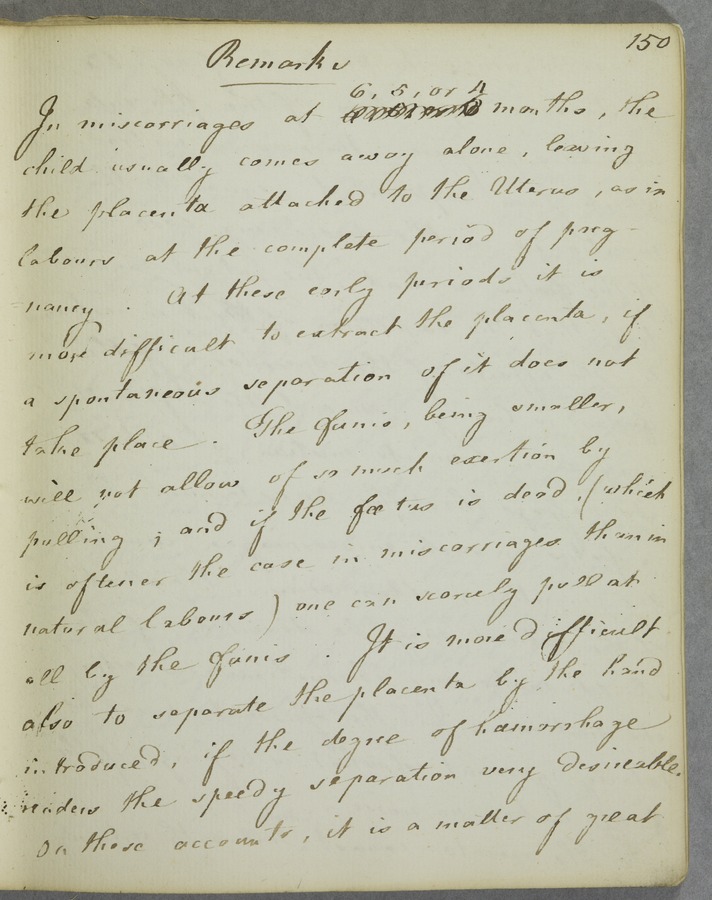 150
Remarks
6, 5, or 4
In miscarriages at months, the
child usually comes away alone, leaving
the placenta attached to the Uterus, as in
labours at the complete period of preg-
nancy. At these early periods it is
more difficult to extract the placenta, if
a spontaneous separation of it does not
take place. The funis, being smaller,
will not allow of so much exertion by
pulling; and if the fœtus is dead, (which
is oftener the case in miscarriages than in
natural labours) one can scarcely pull at
all by the funis. It is more difficult
also to separate the placenta by the hand
introduced, if the degree of hæmorrhage
renders the speedy separation very desireable.
On these accounts, it is a matter of great